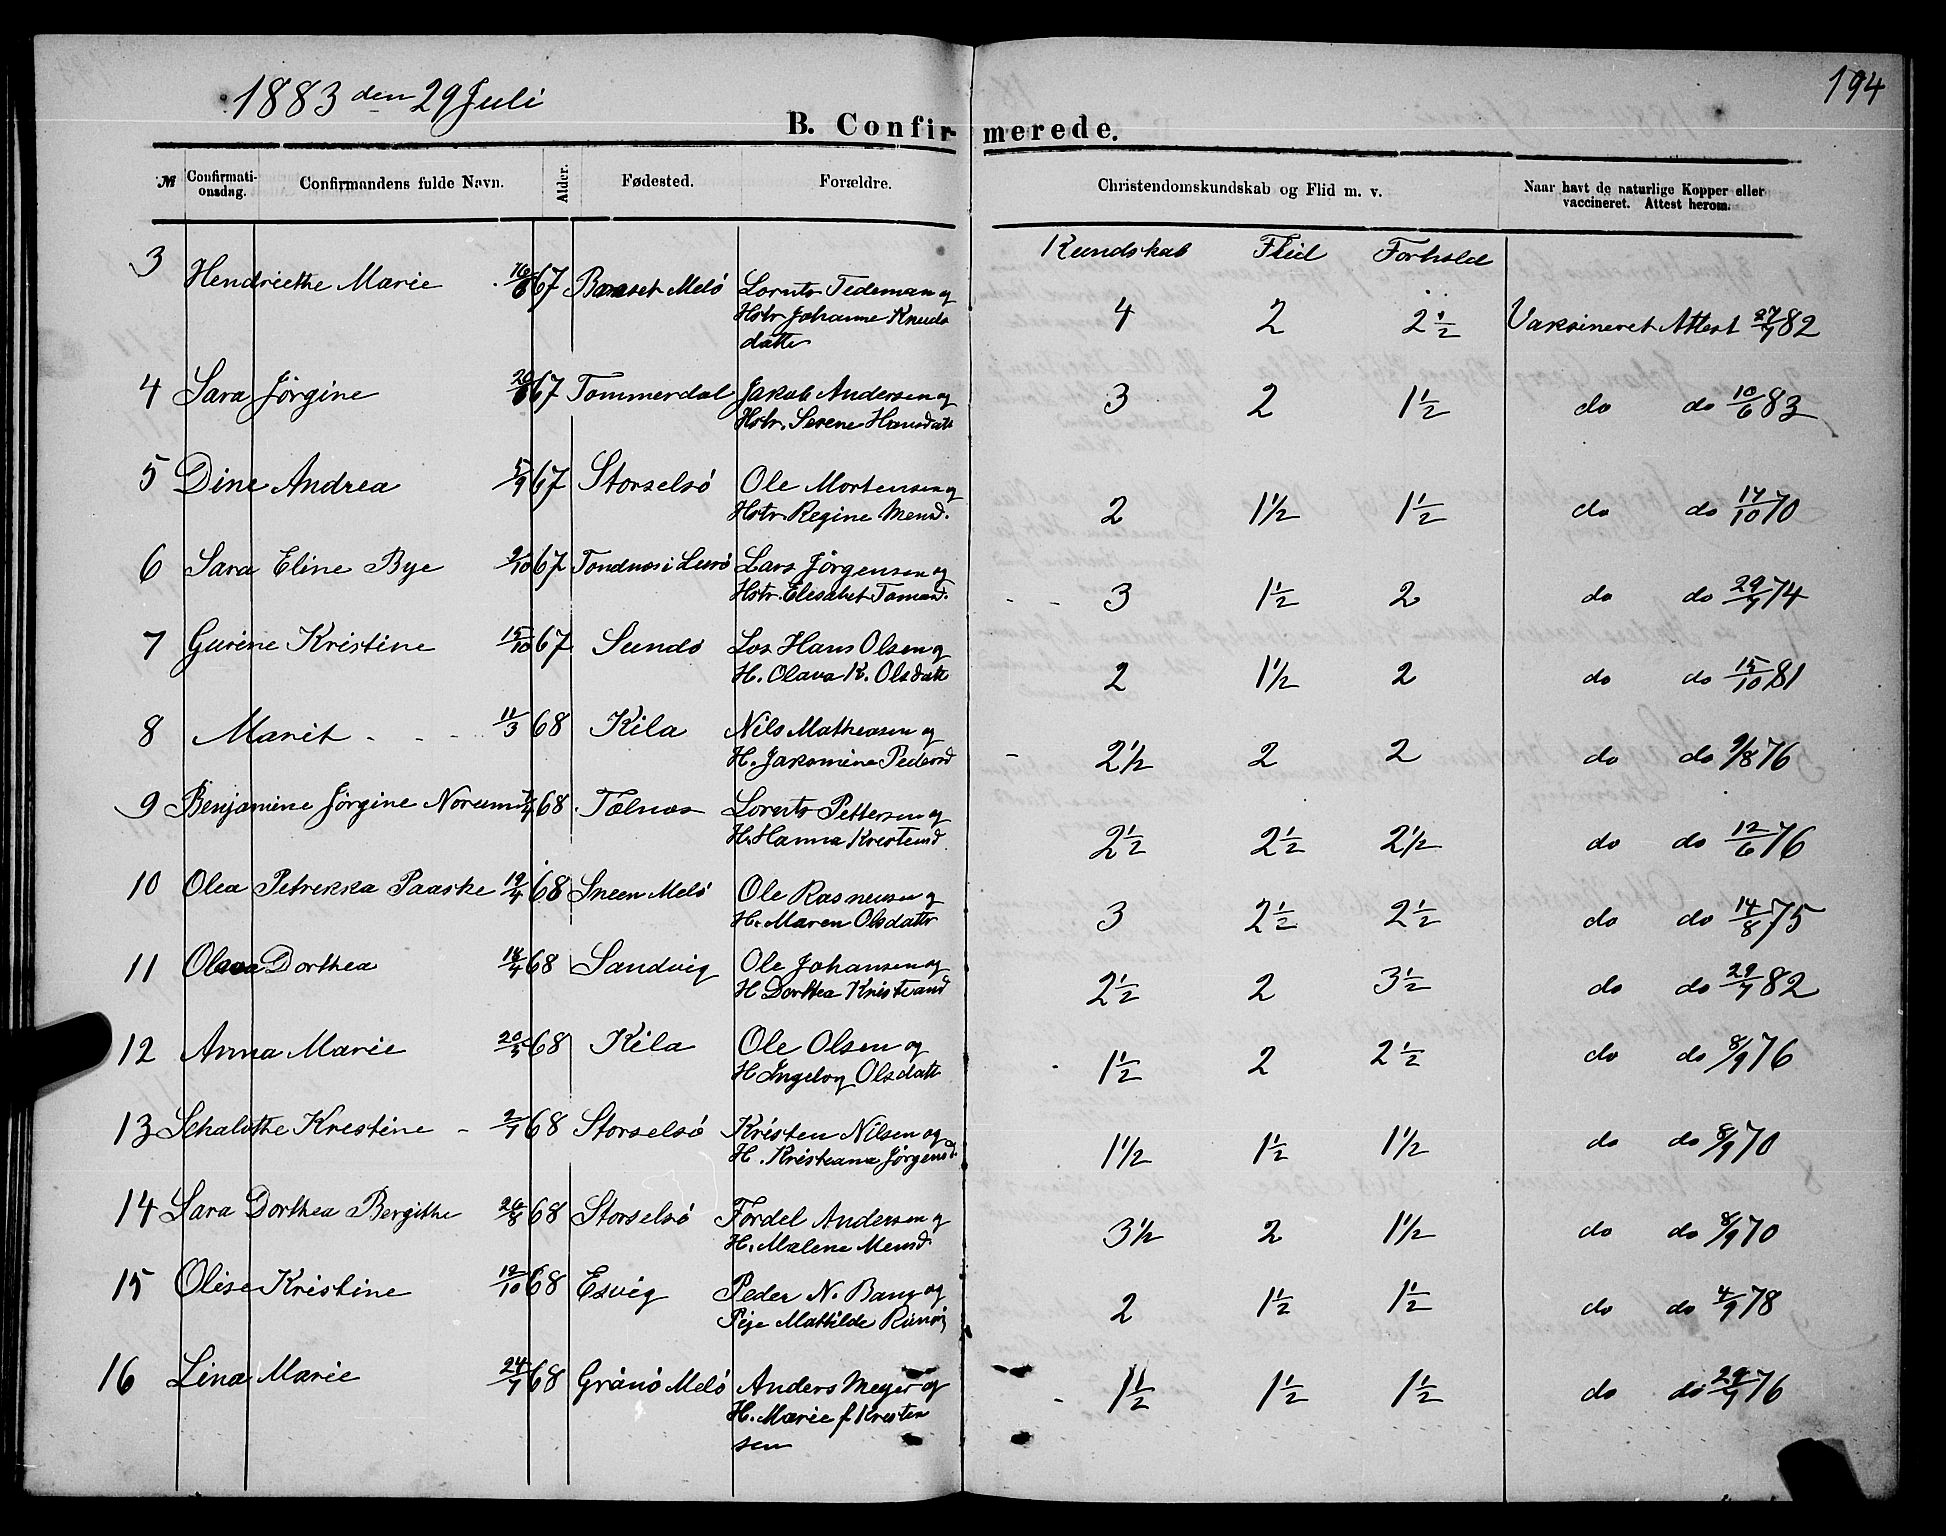 194
1883 den 29 Juli
B. Confirmerede.
№ Confirmationsdag. Confirmandens fulde Navn. Alder. Fødested. Forældre. Christendomskundskab og Flid m. v. Naar havt de naturlige Kopper eller vaccineret. Attest herom.
Kundskab Flid Forhold
3 Hendriethe Marie 16/6 67 Melö Lornts Tedeman og
Hstr Johanne Knuds
datter
4 2 2½ Vaksineret Attest 27/7 82
4 Sara Jörgine 67 Tommerdal Jakob Andersen og
Hstr. Serene Hansdatt
3 2 1½ do do 10/6 83
5 Dine Andrea 5/9 67 Storselsö Ole Mortensen og
Hstr Regine Mensd.
2 1½ 1½ do do 17/10 70
6 Sara Eline Bye 2/10 67 Tondnæs i Lurö Lars Jörgensen og
Hstr. Elesabet Tomasd.
3 1½ 2 do do 29/7 74
7 Gurine Kristine 15/10 67 Sundö Los Hans Olsen og
H. Olava K. Olsdatt
2 1½ 2 do do 15/10 81
8 Marit 11/3 68 Kila Nils Matheasen og
H. Jakomine Pedersd
2½ 2 2 do do 9/8 76
9 Benjamine Jörgine Norum 68 Telnæs Lornts Pettersen og
H. Hanna Krestensd.
2½ 2½ 2½ do do 12/6 76
10 Olea Petrekka Paaske 19/4 68 Sneen Melö Ole Rasmusen og
H. Maren Olsdattr
3 2½ 2½ do do 14/8 75
11 Olava Dorthea 18/4 68 Sandvig Ole Johansen og
H Dorthea Kristiansd
2½ 2 3½ do do 29/7 82
12 Anna Marie 20/5 68 Kila Ole Olsen og
H Ingeborg Olsdatt
1½ 2 2½ do do 8/9 76
13 Schalothe Krestine 2/7 68 Storselsö Kristen Nilsen og
H. Kristiana Jörgensd
1½ 1½ 1½ do do 8/9 70
14 Sara Dorthea Bergithe 26/8 68 Storselsö Fordel Andersen og
H. Malene Mensd.
3½ 2 1½ do do 8/9 70
15 Olise Kristine 12/10 68 Esvig Peder N. Bang og
Pige Mathilde
2 1½ 1½ do do 4/9 78
16 Lina Marie 24/7 68 Grönö Melö Anders Meyer og
H. Marie f. Kresten
sen
1½ 1½ 1½ do do 29/7 76